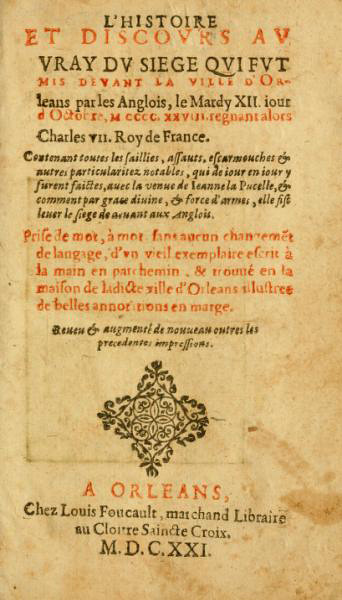 L'HISTOIRE
ET DISCOVRS AV
VRAY DV SIEGE QVI FVT
MIS DEVANT LA VILLE D'OR-
leans par les Anglois, le Mardy XII. iour
d'Octobre, M CCCC. XXVIII. regnant alors
Charles VII. Roy de France.
Contenant toutes les saillies, assauts, escarmouches &
autres particularitez notables, qui de iour en iour y
furent faictes, auec la venue de Ieanne la Pucelle, &
comment par grace diuine, & force d'armes, elle fist
leuer le siege de deuant aux Anglois.
Prise de mot, à mot, sans aucun changemẽt
de langage, d'vn vieil exemplaire escrit à
la main en parchemin, & trouué en la
maison de ladicte ville d'Orleans illustree
de belles annotations en marge.
Reueu & augmenté de nouueau outres les
precedentes impressions.
A ORLEANS,
Chez Louis Foucault, marchand Libraire
au Cloitre Saincte Croix.
M.D.C.XXI.